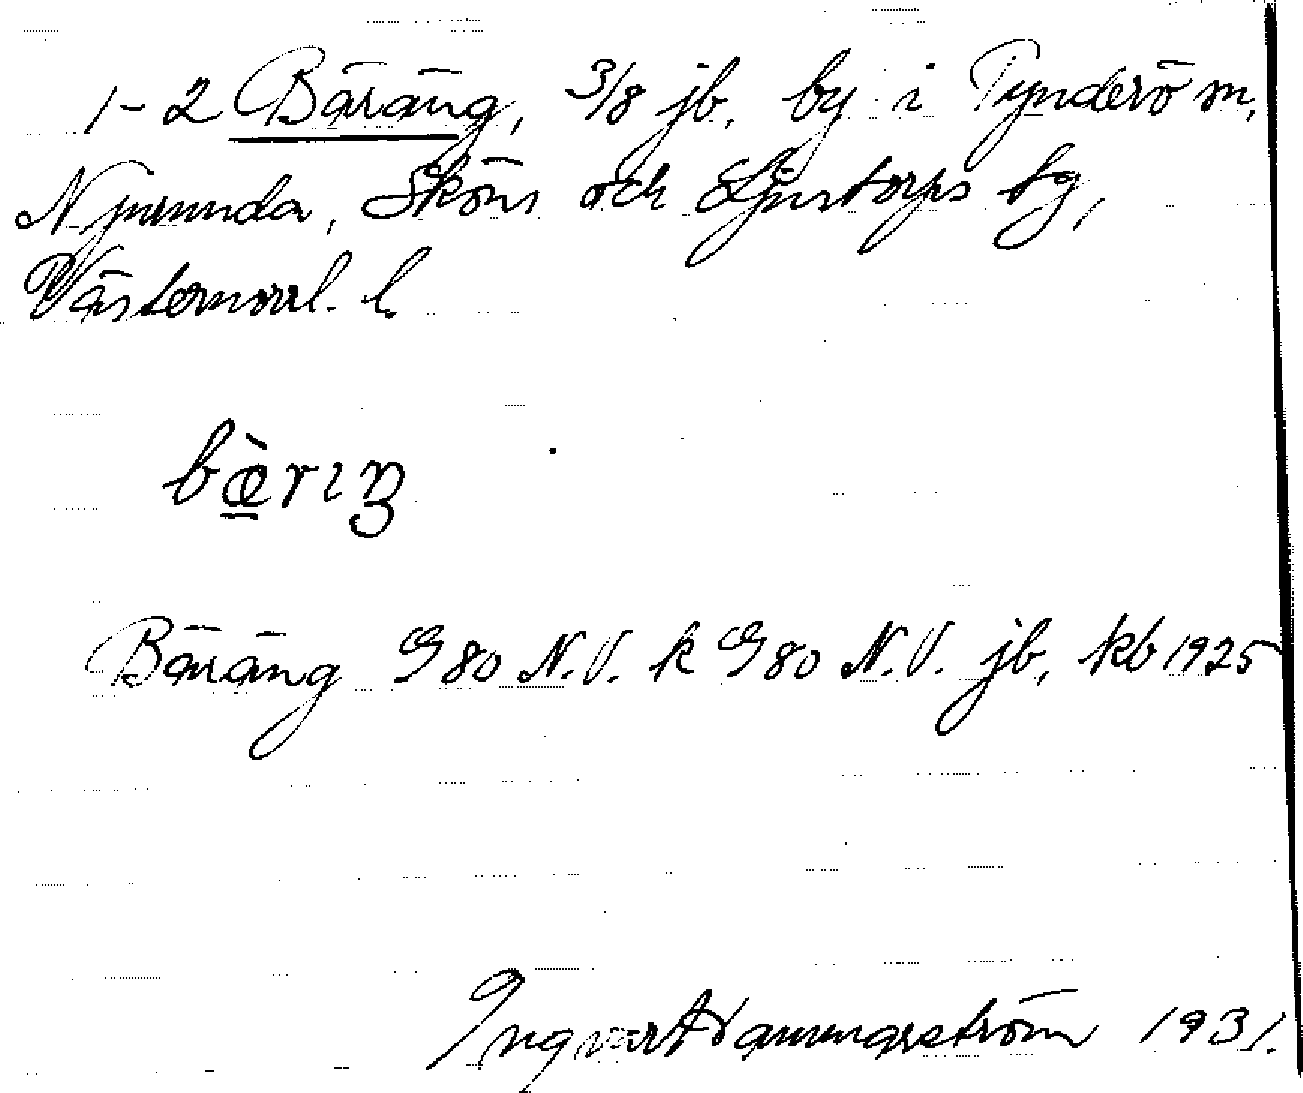 1-2 Bäräng, 3/8 jb. by i Tynderö sn,
Njurunda, Sköns och Ljustorps tg,
Västernorrl. l.
bæ̀rıŋ
Bäräng G80 N.V. k G80 N.V. jb, kb 1925
Ingvar Hammarström 1931.